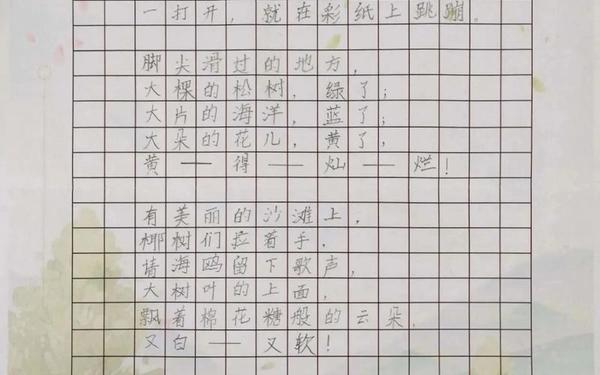 一打开，就在彩纸上跳蹦。
脚尖滑过的地方，
大棵的松树，绿了；
大片的海洋，蓝了；
大朵的花儿，黄了，
黄——得——灿——烂！
有美丽的沙滩上，
椰树们拉着手，
请海鸥留下歌声，
大树叶的上面，
飘着棉花糖般的云朵，
又白——又软！